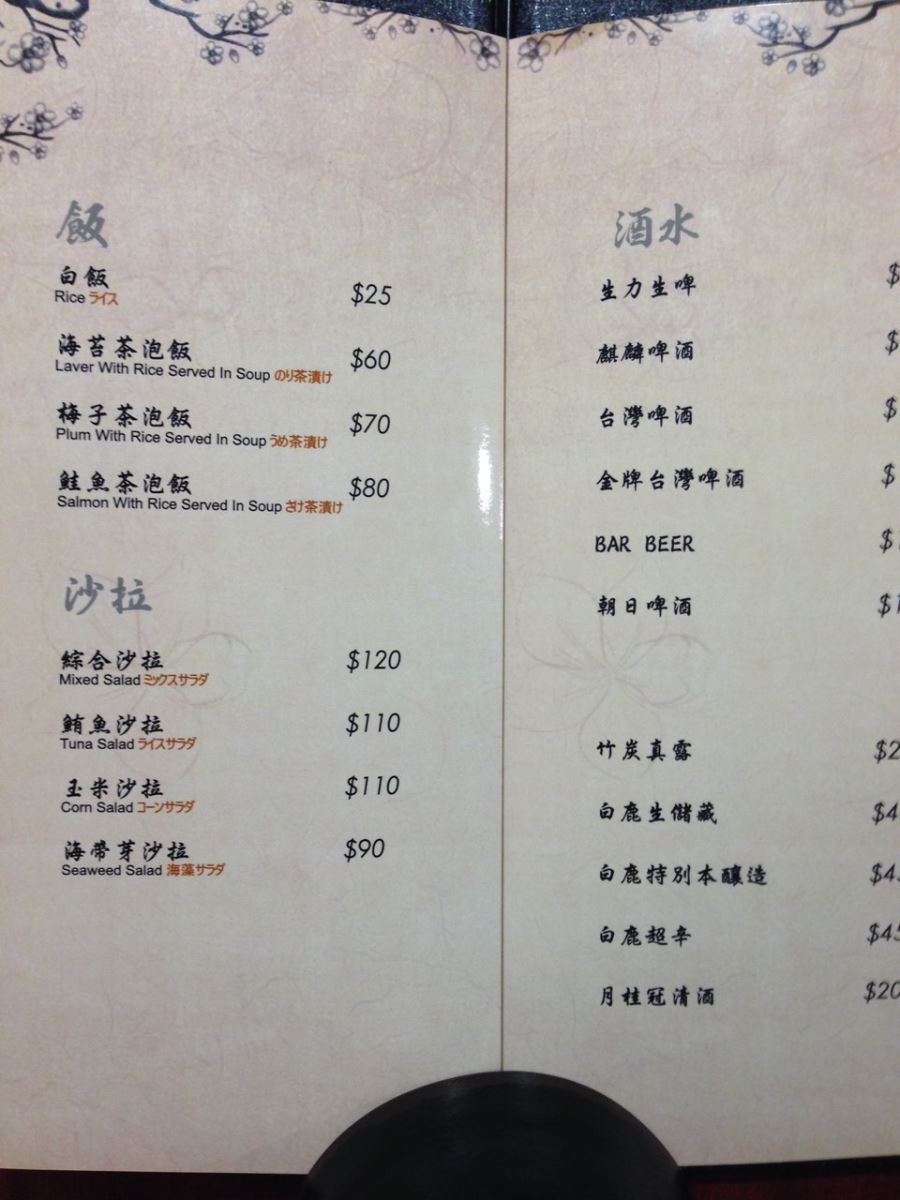 飯
白飯 $25
Rice ライス
海苔茶泡飯 $60
Laver With Rice Served In Soup のり茶漬け
梅子茶泡飯 $70
Plum With Rice Served In Soup うめ茶漬け
鮭魚茶泡飯 $80
Salmon With Rice Served In Soup さけ茶漬け
沙拉
綜合沙拉 $120
Mixed Salad ミックスサラダ
鮪魚沙拉 $110
Tuna Salad ライスサラダ
玉米沙拉 $110
Corn Salad コーンサラダ
海帶芽沙拉 $90
Seaweed Salad 海藻サラダ
酒水
生力生啤 $
麒麟啤酒 $
台灣啤酒 $
金牌台灣啤酒 $
BAR BEER $1
朝日啤酒 $1
竹炭真露 $2
白鹿生儲藏 $4
白鹿特別本釀造 $4
白鹿超辛 $45
月桂冠清酒 $20